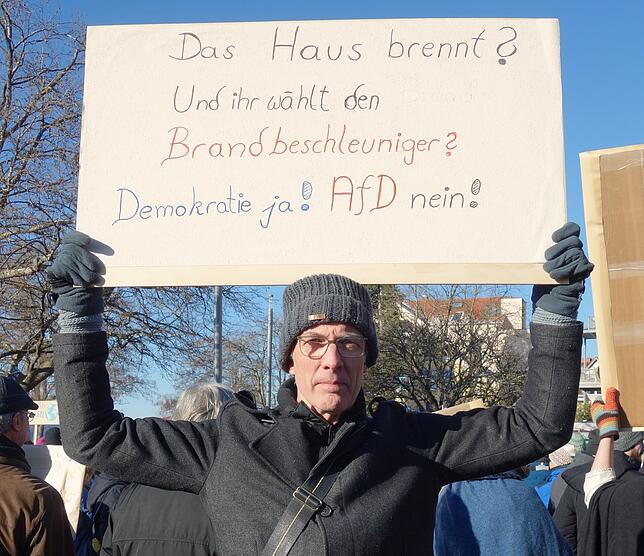 Das Haus brennt?
Und ihr wählt den
Brandbeschleuniger?
Demokratie ja! AfD nein!